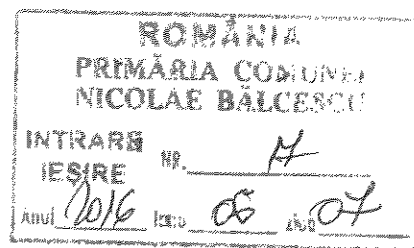 ROMÂNIA
PRIMĂRIA COMUNEI
NICOLAE BĂLCESCU
INTRARE
IEȘIRE NR.
Anul 2016 luna 06 ziua 07